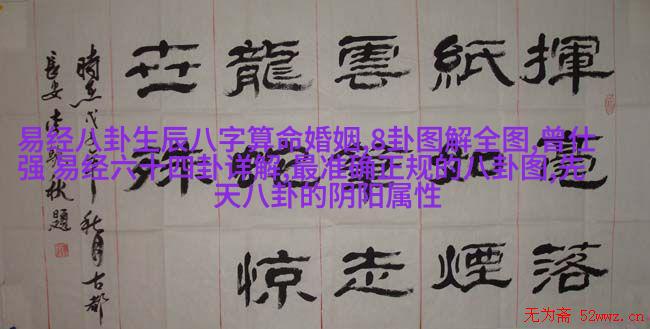 揮毫落
紙如煙
雲走
龍蛇惊
世殊
秋月古都
長安秋題
易经八卦生辰八字算命婚姻,8卦图解全图,曾仕
强 易经六十四卦详解,最准确正规的八卦图,先
天八卦的阴阳属性
无为斋 52wwz.cn